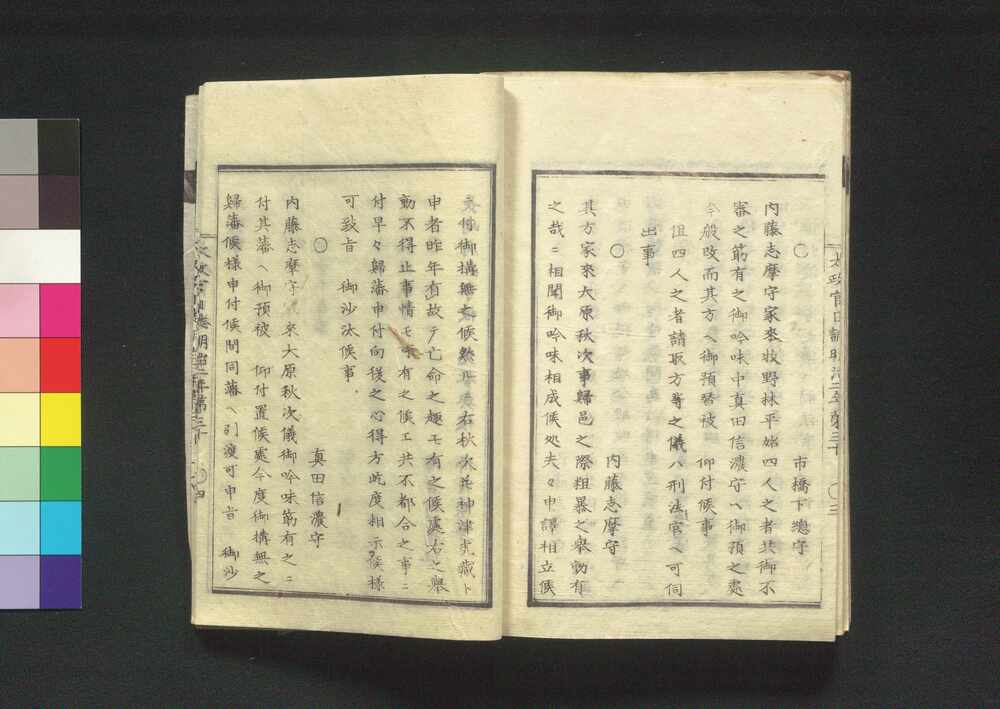 〇
市橋下總守
内藤志摩守家來牧野林平始四人之者共御不
審之筋有之御吟味中真田信濃守ヘ御預之處
今般改而其方ヘ御預替被 仰付候事
但四人之者請取方等之儀ハ刑法官ヘ可伺
出事
〇
内藤志摩守
其方家來大原秋次事歸邑之際粗暴之舉動有
之哉ニ相聞御吟味相成候処夫々申譯相立候
付御構無之候 右秋次共神津虎藏ト
申者昨年有故テ亡命之趣モ有之候處右之舉
動不得止事情モ 有之候エ共不都合之事ニ
付早々歸藩申付向後之心得方屹度相示候様
可致旨 御沙汰候事
〇
真田信濃守
内藤志摩守 來大原秋次儀御吟味筋有之ニ
付其藩ヘ御預被 仰付置候處今度御構無之
歸藩候様申付候間同藩ヘ引渡可申旨 御沙
太政官日誌明治二年第三十 〇三
四